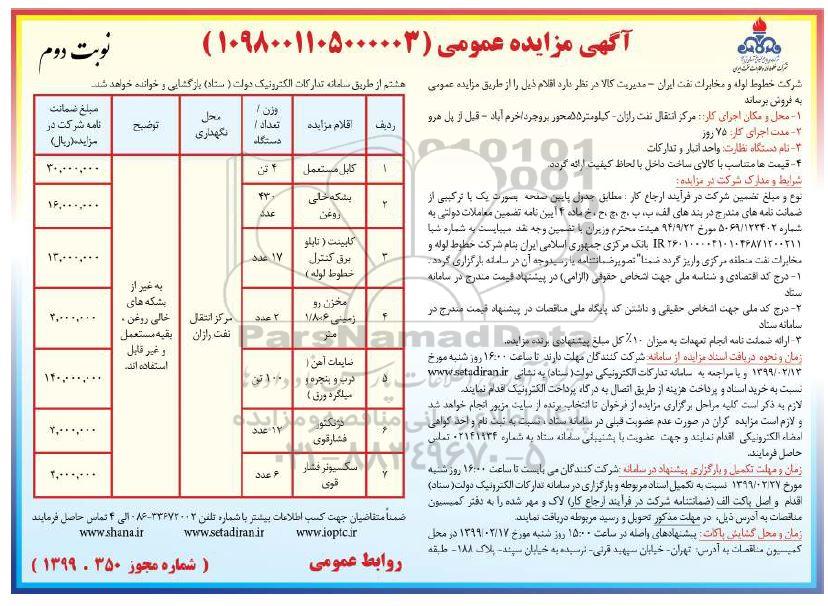 آگهی مزایده عمومی ( ۱۰۹۸۰۰۱۱۰۵۰۰۰۰۰۳ )
نوبت دوم
شرکت خطوط لوله و مخابرات نفت ایران – مدیریت کالا در نظر دارد اقلام ذیل را از طریق مزایده عمومی
به فروش برساند
۱- محل و مکان اجرای کار: : مرکز انتقال نفت رازان- کیلومتر۵۵محور بروجرد/خرم آباد – قبل از پل هرو
۲- مدت اجرای کار: ۷۵ روز
۳- نام دستگاه نظارت: واحد انبار و تدارکات
۴- قیمت ها متناسب با کالای ساخت داخل با لحاظ کیفیت ارائه گردد.
شرایط و مدارک شرکت در مزایده :
نوع و مبلغ تضمین شرکت در فرآیند ارجاع کار : مطابق جدول پایین صفحه بصورت یک یا ترکیبی از
ضمانت نامه های مندرج در بند های الف، ب، پ ،ج ،چ ،ح ، خ ماده ۴ آیین نامه تضمین معاملات دولتی به
شماره ۱۲۳۴۰۲/ت۵۰۶۹ مورخ ۹۴/۹/۲۲ هیئت محترم وزیران با تضمین وجه نقد میبایست به شماره شبا
IR ۲۶۰۱۰۰۰۰۴۱۰۱۰۴۶۸۷۱۲۰۰۲۱۱ بانک مرکزی جمهوری اسلامی ایران بنام شرکت خطوط لوله و
مخابرات نفت منطقه مرکزی واریز گردد ضمنا" تصویرضمانتنامه یا رسیدوجه آن در سامانه بارگزاری گردد .
۱- درج کد اقتصادی و شناسه ملی جهت اشخاص حقوقی (الزامی) در پیشنهاد قیمت مندرج در سامانه
ستاد
۲- درج کد ملی جهت اشخاص حقیقی و داشتن کد پایگاه ملی مناقصات در پیشنهاد قیمت مندرج در
سامانه ستاد
۳- ارائه ضمانت نامه انجام تعهدات به میزان ۱۰٪ کل مبلغ پیشنهادی برنده مزایده.
زمان و نحوه دریافت اسناد مزایده از سامانه: شرکت کنندگان مهلت دارند تا ساعت ۱۶:۰۰ روز شنبه مورخ
۱۳۹۹/۰۲/۱۳ و یا مراجعه به سامانه تدارکات الکترونیکی دولت( ستاد) به نشانی www.setadiran.ir
نسبت به خرید اسناد و پرداخت هزینه از طریق اتصال به درگاه پرداخت الکترونیک قدام نمایند.
لازم به ذکر است کلیه مراحل برگزاری مزایده از فرخوان تا انتخاب برنده از سایت مزبور انجام خواهد شد
و لازم است مزایده گران در صورت عدم عضویت قبلی در سامانه ستاد ، نسبت به ثبت نام و اخذ گواهی
امضاء الکترونیکی اقدام نمایند و جهت عضویت با پشتیبانی سامانه ستاد به شماره ۰۲۱۴۱۹۳۴ تماس
حاصل فرمایند.
زمان و مهلت تکمیل و بارگزاری پیشنهاد در سامانه :شرکت کنندگان می بایست تا ساعت ۱۶:۰۰ روز شنبه
مورخ ۱۳۹۹/۰۲/۲۷ نسبت به تکمیل اسناد مربوطه و بارگزاری در سامانه تدارکات الکترونیک دولت(ستاد)
اقدام و اصل پاکت الف (ضمانتنامه شرکت در فرآیند ارجاع کار) لاک و مهر شده را به دفتر کمیسیون
مناقصات به آدرس ذیل، در مهلت مذکور تحویل و رسید مربوطه دریافت نمایند.
زمان و محل گشایش پاکات : پیشنهادهای واصله در ساعت ۱۵:۰۰ روز شنبه مورخ ۱۳۹۹/۰۲/۱۷ در محل
کمیسیون مناقصات به آدرس: تهران- خیابان سپهبد قرنی- نرسیده به خیابان سپند- پلاک ۱۸۸- طبقه
هشتم از طریق سامانه تدارکات الکترونیک دولت ( ستاد) بازگشایی و خوانده خواهد شد.
ردیف | اقلام مزایده | وزن / تعداد / دستگاه | محل نگهداری | توضیح | مبلغ ضمانت نامه شرکت در مزایده(ریال)
۱ | کابل مستعمل | ۴ تن | ۳۰,۰۰۰,۰۰۰
۲ | بشکه خالی روغن | ۴۳۰ عدد | ۱۶,۰۰۰,۰۰۰
۳ | کابینت ( تابلو برق کنترل خطوط لوله ) | ۱۷ عدد | ۱۳,۰۰۰,۰۰۰
۴ | مخزن رو زمینی ۱/۸۰۶ متر | ۲ عدد | ۲,۰۰۰,۰۰۰
مرکز انتقال نفت رازان
به غیر از بشکه های خالی روغن ، بقیه مستعمل و غیر قابل استفاده اند.
۵ | ضایعات آهن ( درب و پنجره و میلگرد ورق ) | ۱۰۰ تن | ۱۴۰,۰۰۰,۰۰۰
۶ | دژنکتور فشارقوی | ۱۲ عدد | ۲,۰۰۰,۰۰۰
۷ | سکسیونر فشار قوی | ۶ عدد | ۲,۰۰۰,۰۰۰
ضمناً متقاضیان جهت کسب اطلاعات بیشتر با شماره تلفن ۳۳۶۷۲۰۰۲-۰۸۶ الی ۴ تماس حاصل فرمایند
www.shana.ir www.setadiran.ir www.ioptc.ir
روابط عمومی ( شماره مجوز ۳۵۰ . ۱۳۹۹ )
ParsNamadData
پایگاه اطلاع رسانی مناقصه و مزایده
۰۲۱-۸۸۳۴۹۶۷۰-۵